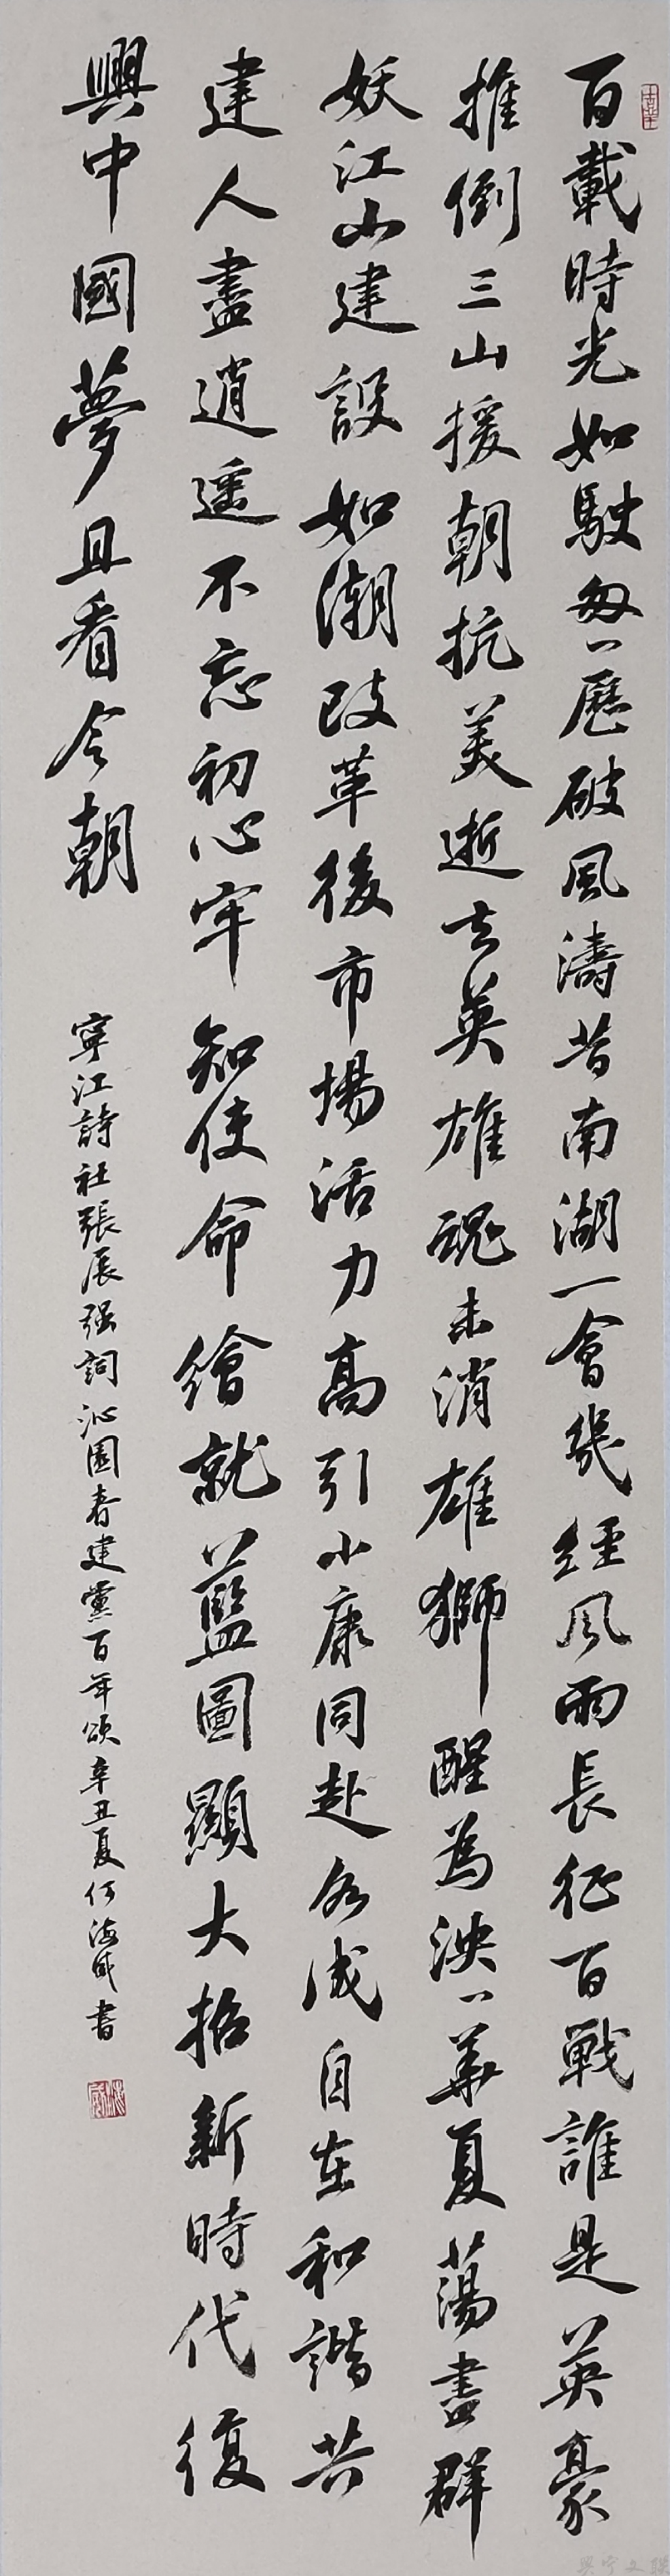 百載時光如駛匆匆歷破風濤昔南湖一會幾經風雨長征百戰誰是英豪
推倒三山援朝抗美逝去英雄魂未消雄獅醒為泱泱華夏蕩盡群
妖江山建設如潮改革後市場活力高引小康同赴務成自在和諧共
建人盡逍遥不忘初心牢知使命繪就藍圖顯大招新時代復
興中國夢且看今朝
寧江詩社張展强詞沁園春建黨百年頌辛丑夏何海成書
興寧文聯